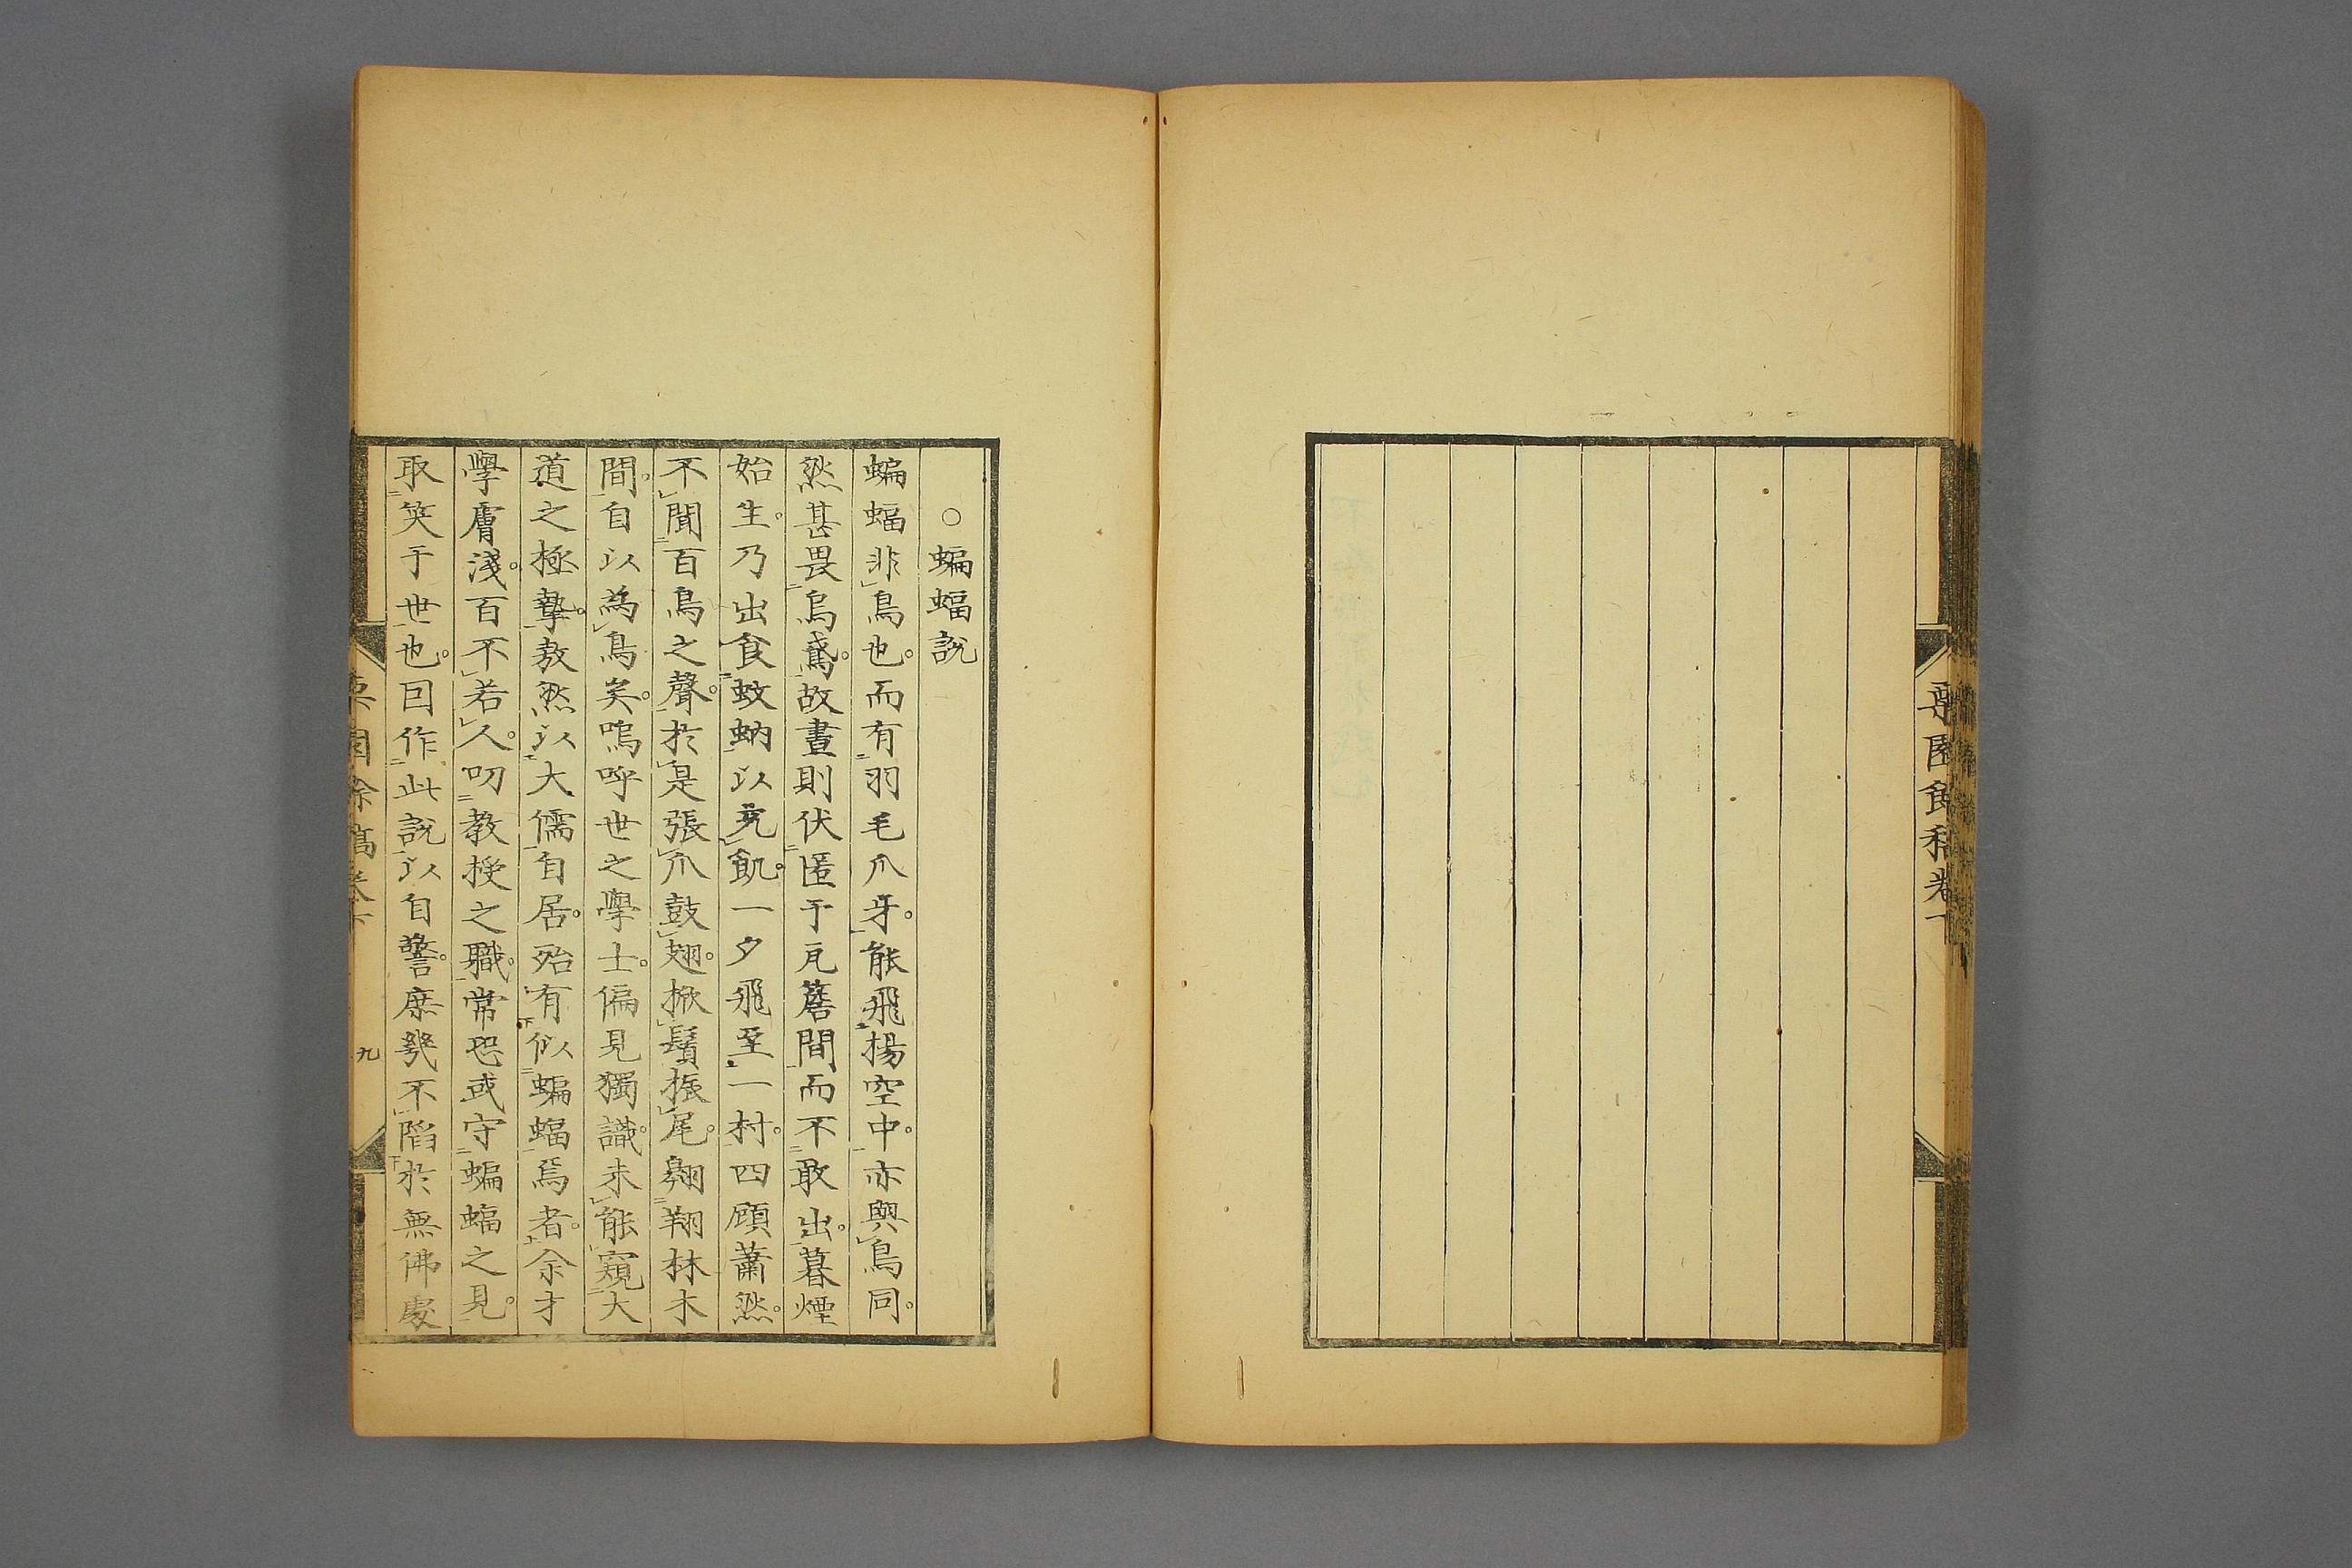 ○蝙蝠說
蝙蝠非鳥也。而有羽毛爪牙。能飛揚空中。亦與鳥同。
然甚畏烏鳶。故晝則伏匿于瓦簷間而不敢出。暮煙
始生。乃出食蚊蚋以充飢。一夕飛至一村。四顧蕭然。
不聞百鳥之聲。於是張爪鼓翅。掀鬚振尾。翱翔林木
間。自以為鳥矣。嗚呼世之學士。偏見獨識。未能窺大
道之極摯。敖然以大儒自居。殆有似蝙蝠焉者。余才
學膚淺。百不若人。叨教授之職。常恐或守蝙蝠之見。
取笑于世也。因作此說以自警。庶幾不陷於無佛處
九